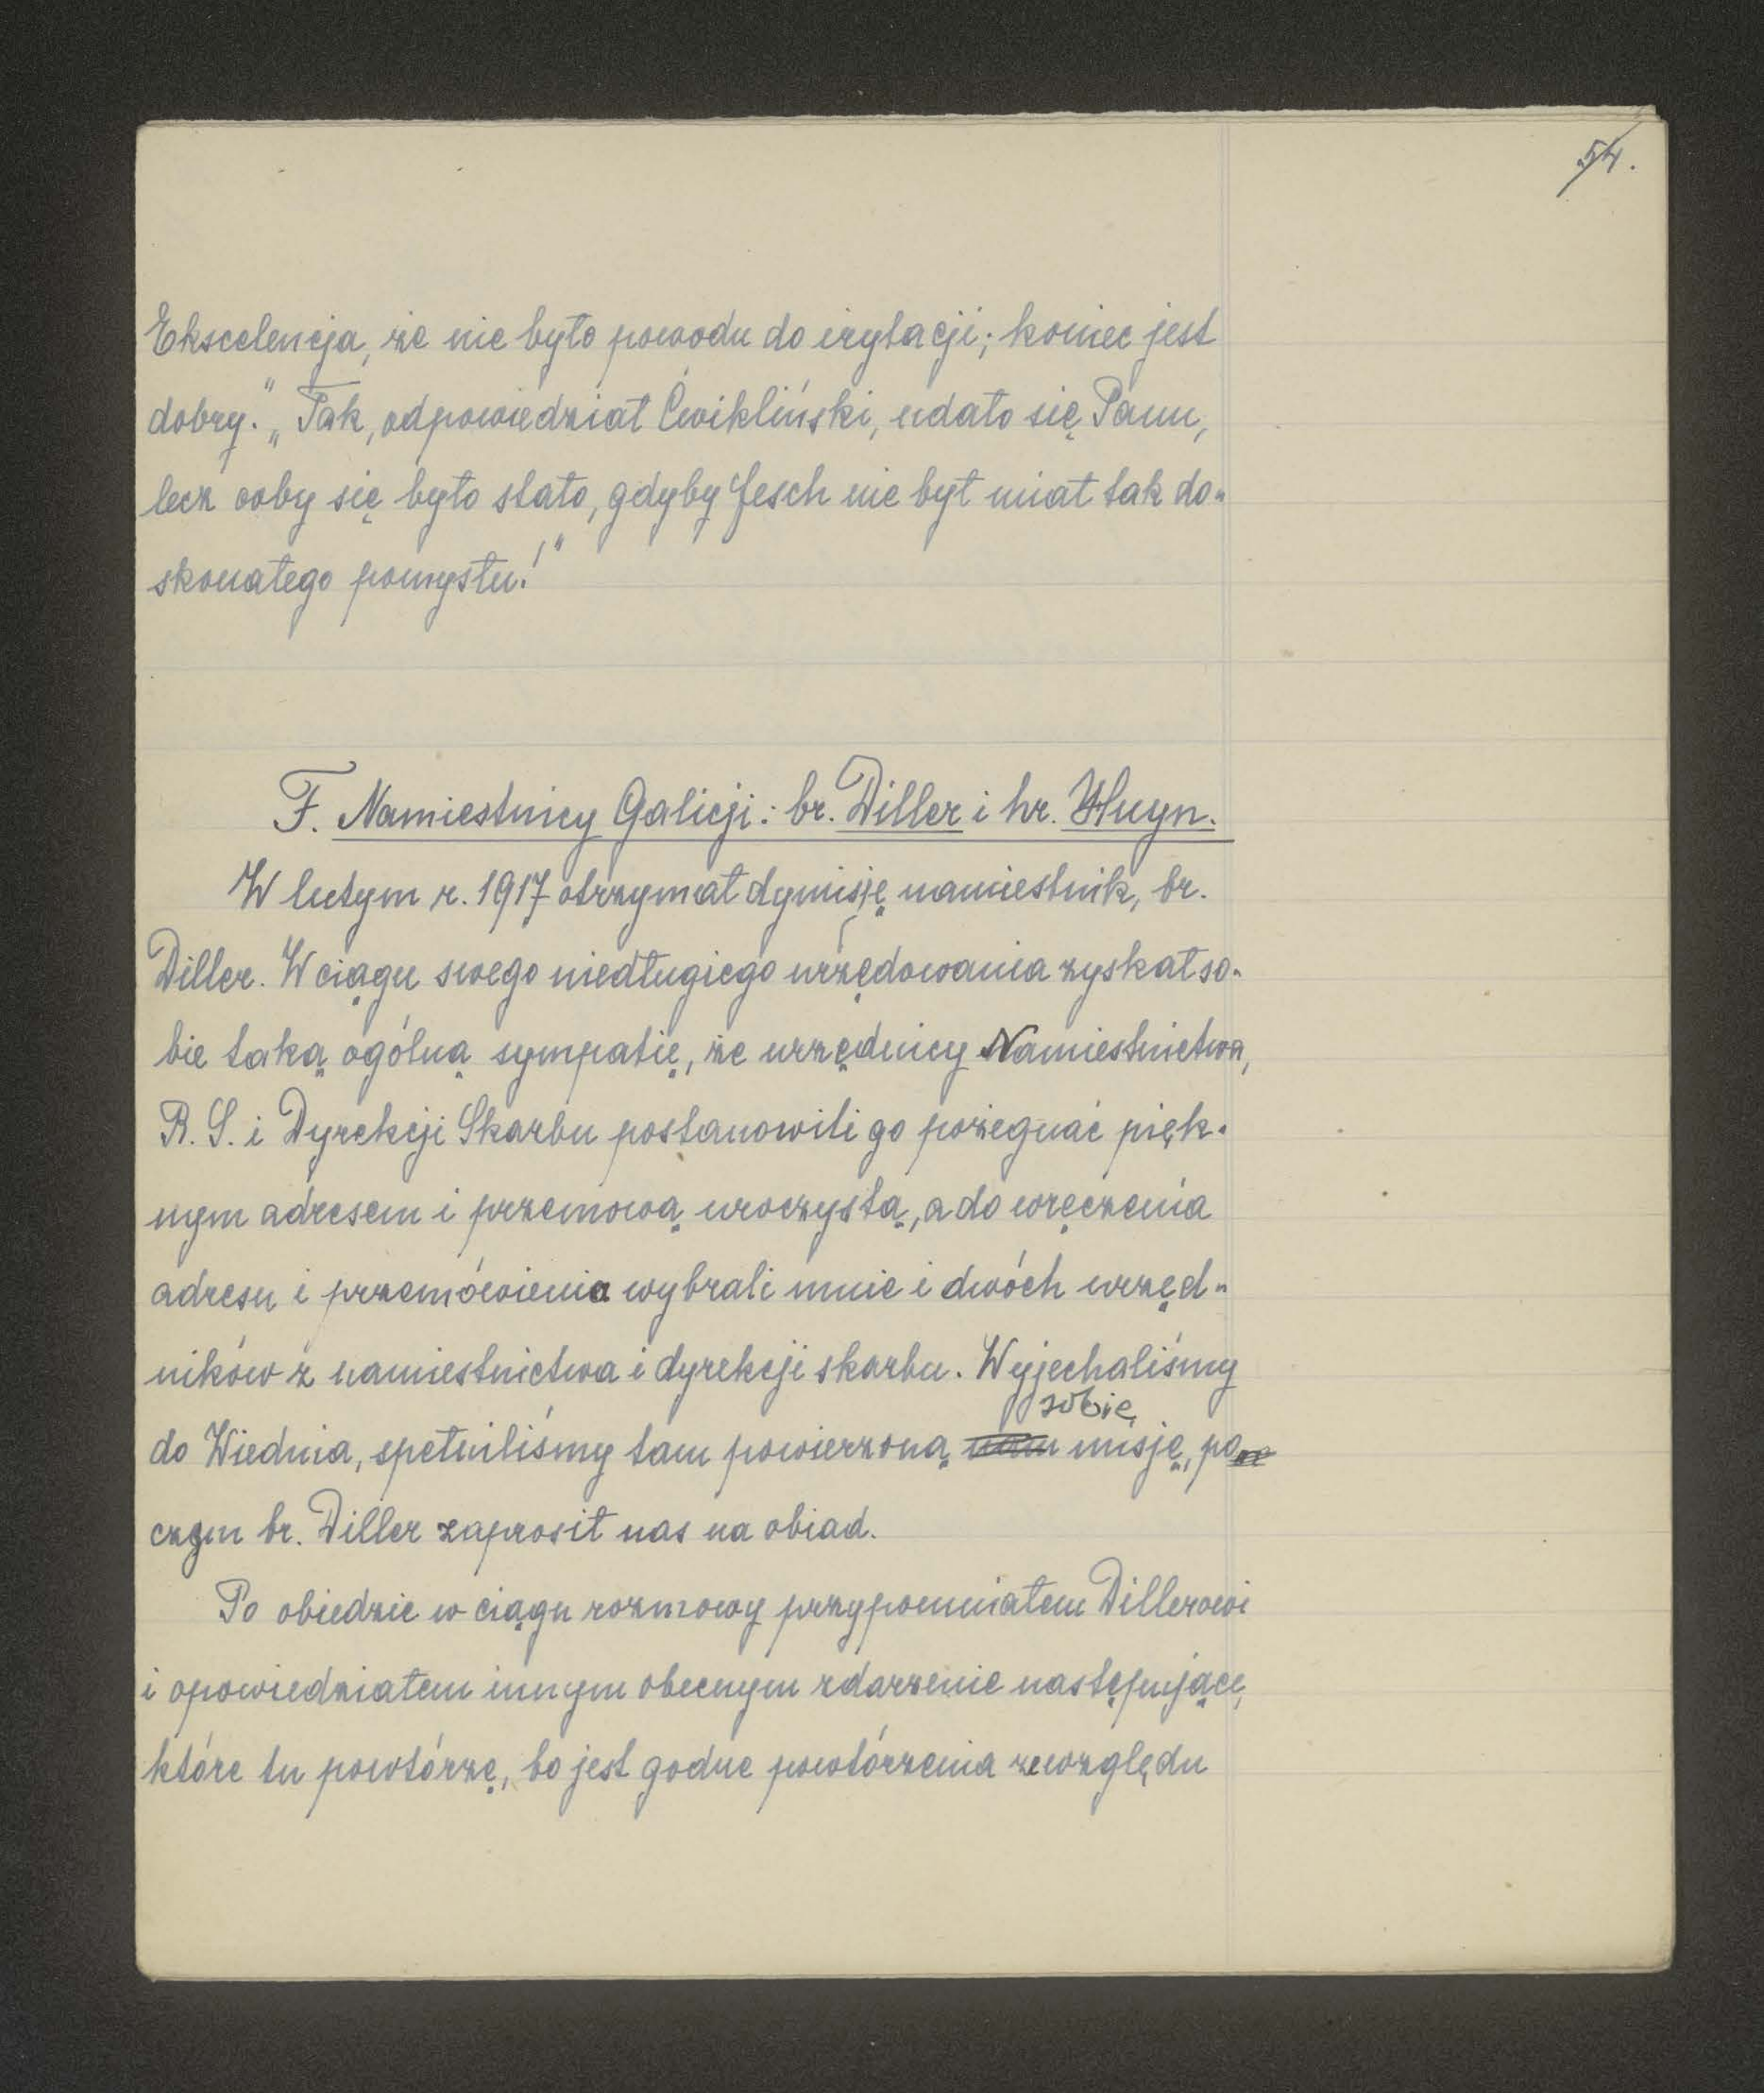 54.
Ekscelencja, że nie było powodu do irytacji; koniec jest
dobry." „Tak, odpowiedział Ćwikliński, udało się Panu,
lecz coby się było stało, gdyby Jesch nie był miał tak do-
skonałego pomysłu!"
F. Namiestnicy Galicji: br. Diller i hr. Huyn.
W lutym r. 1917 otrzymał dymisję namiestnik, br.
Diller. W ciągu swego niedługiego urzędowania zyskał so-
bie taką ogólną sympatię, że urzędnicy Namiestnictwa,
R. S. i Dyrekcji Skarbu postanowili go pożegnać pięk-
nym adresem i przemową uroczystą, a do wręczenia
adresu i przemówienia wybrali mnie i dwóch urzęd-
ników z namiestnictwa i dyrekcji skarbu. Wyjechaliśmy
sobie
do Wiednia, spełniliśmy tam powierzoną nam misję, po
czym br. Diller zaprosił nas na obiad.
Po obiedzie w ciągu rozmowy przypomniałem Dillerowi
i opowiedziałem innym obecnym zdarzenie następujące,
które tu powtórzę, bo jest godne powtórzenia ze względu